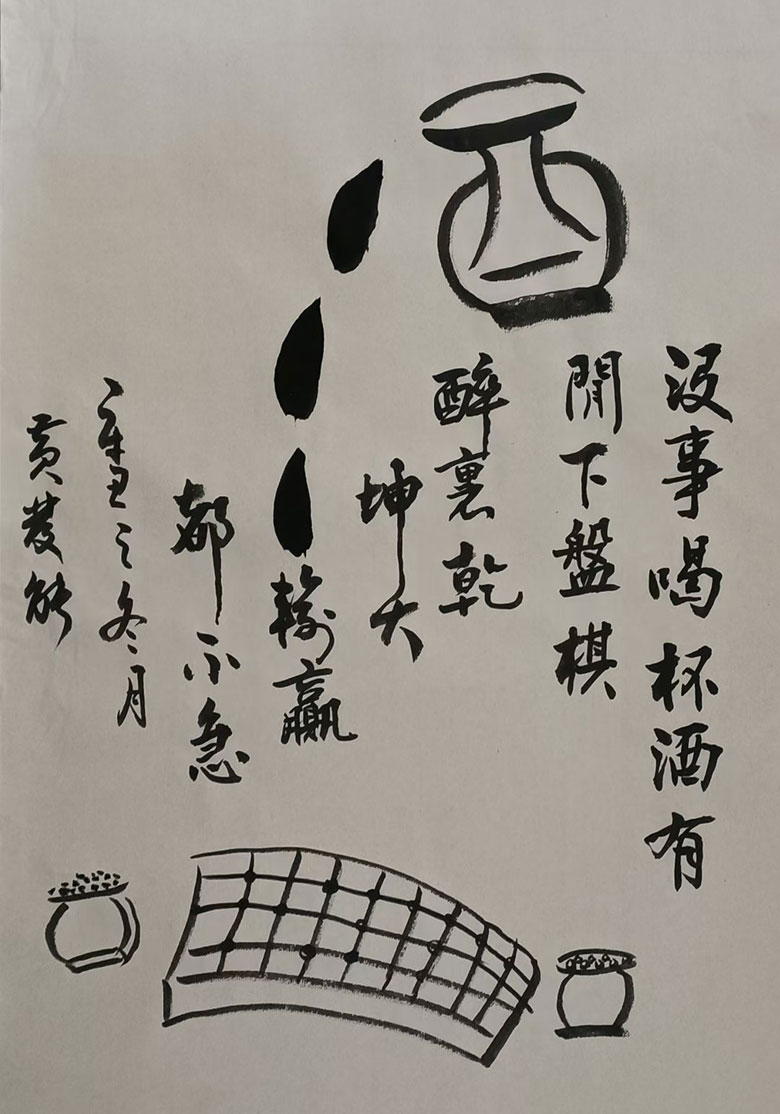 酒
没事喝杯酒有
閒下盤棋
醉裏乾
坤大
輸贏
都不急
辛丑之冬月
黄發能